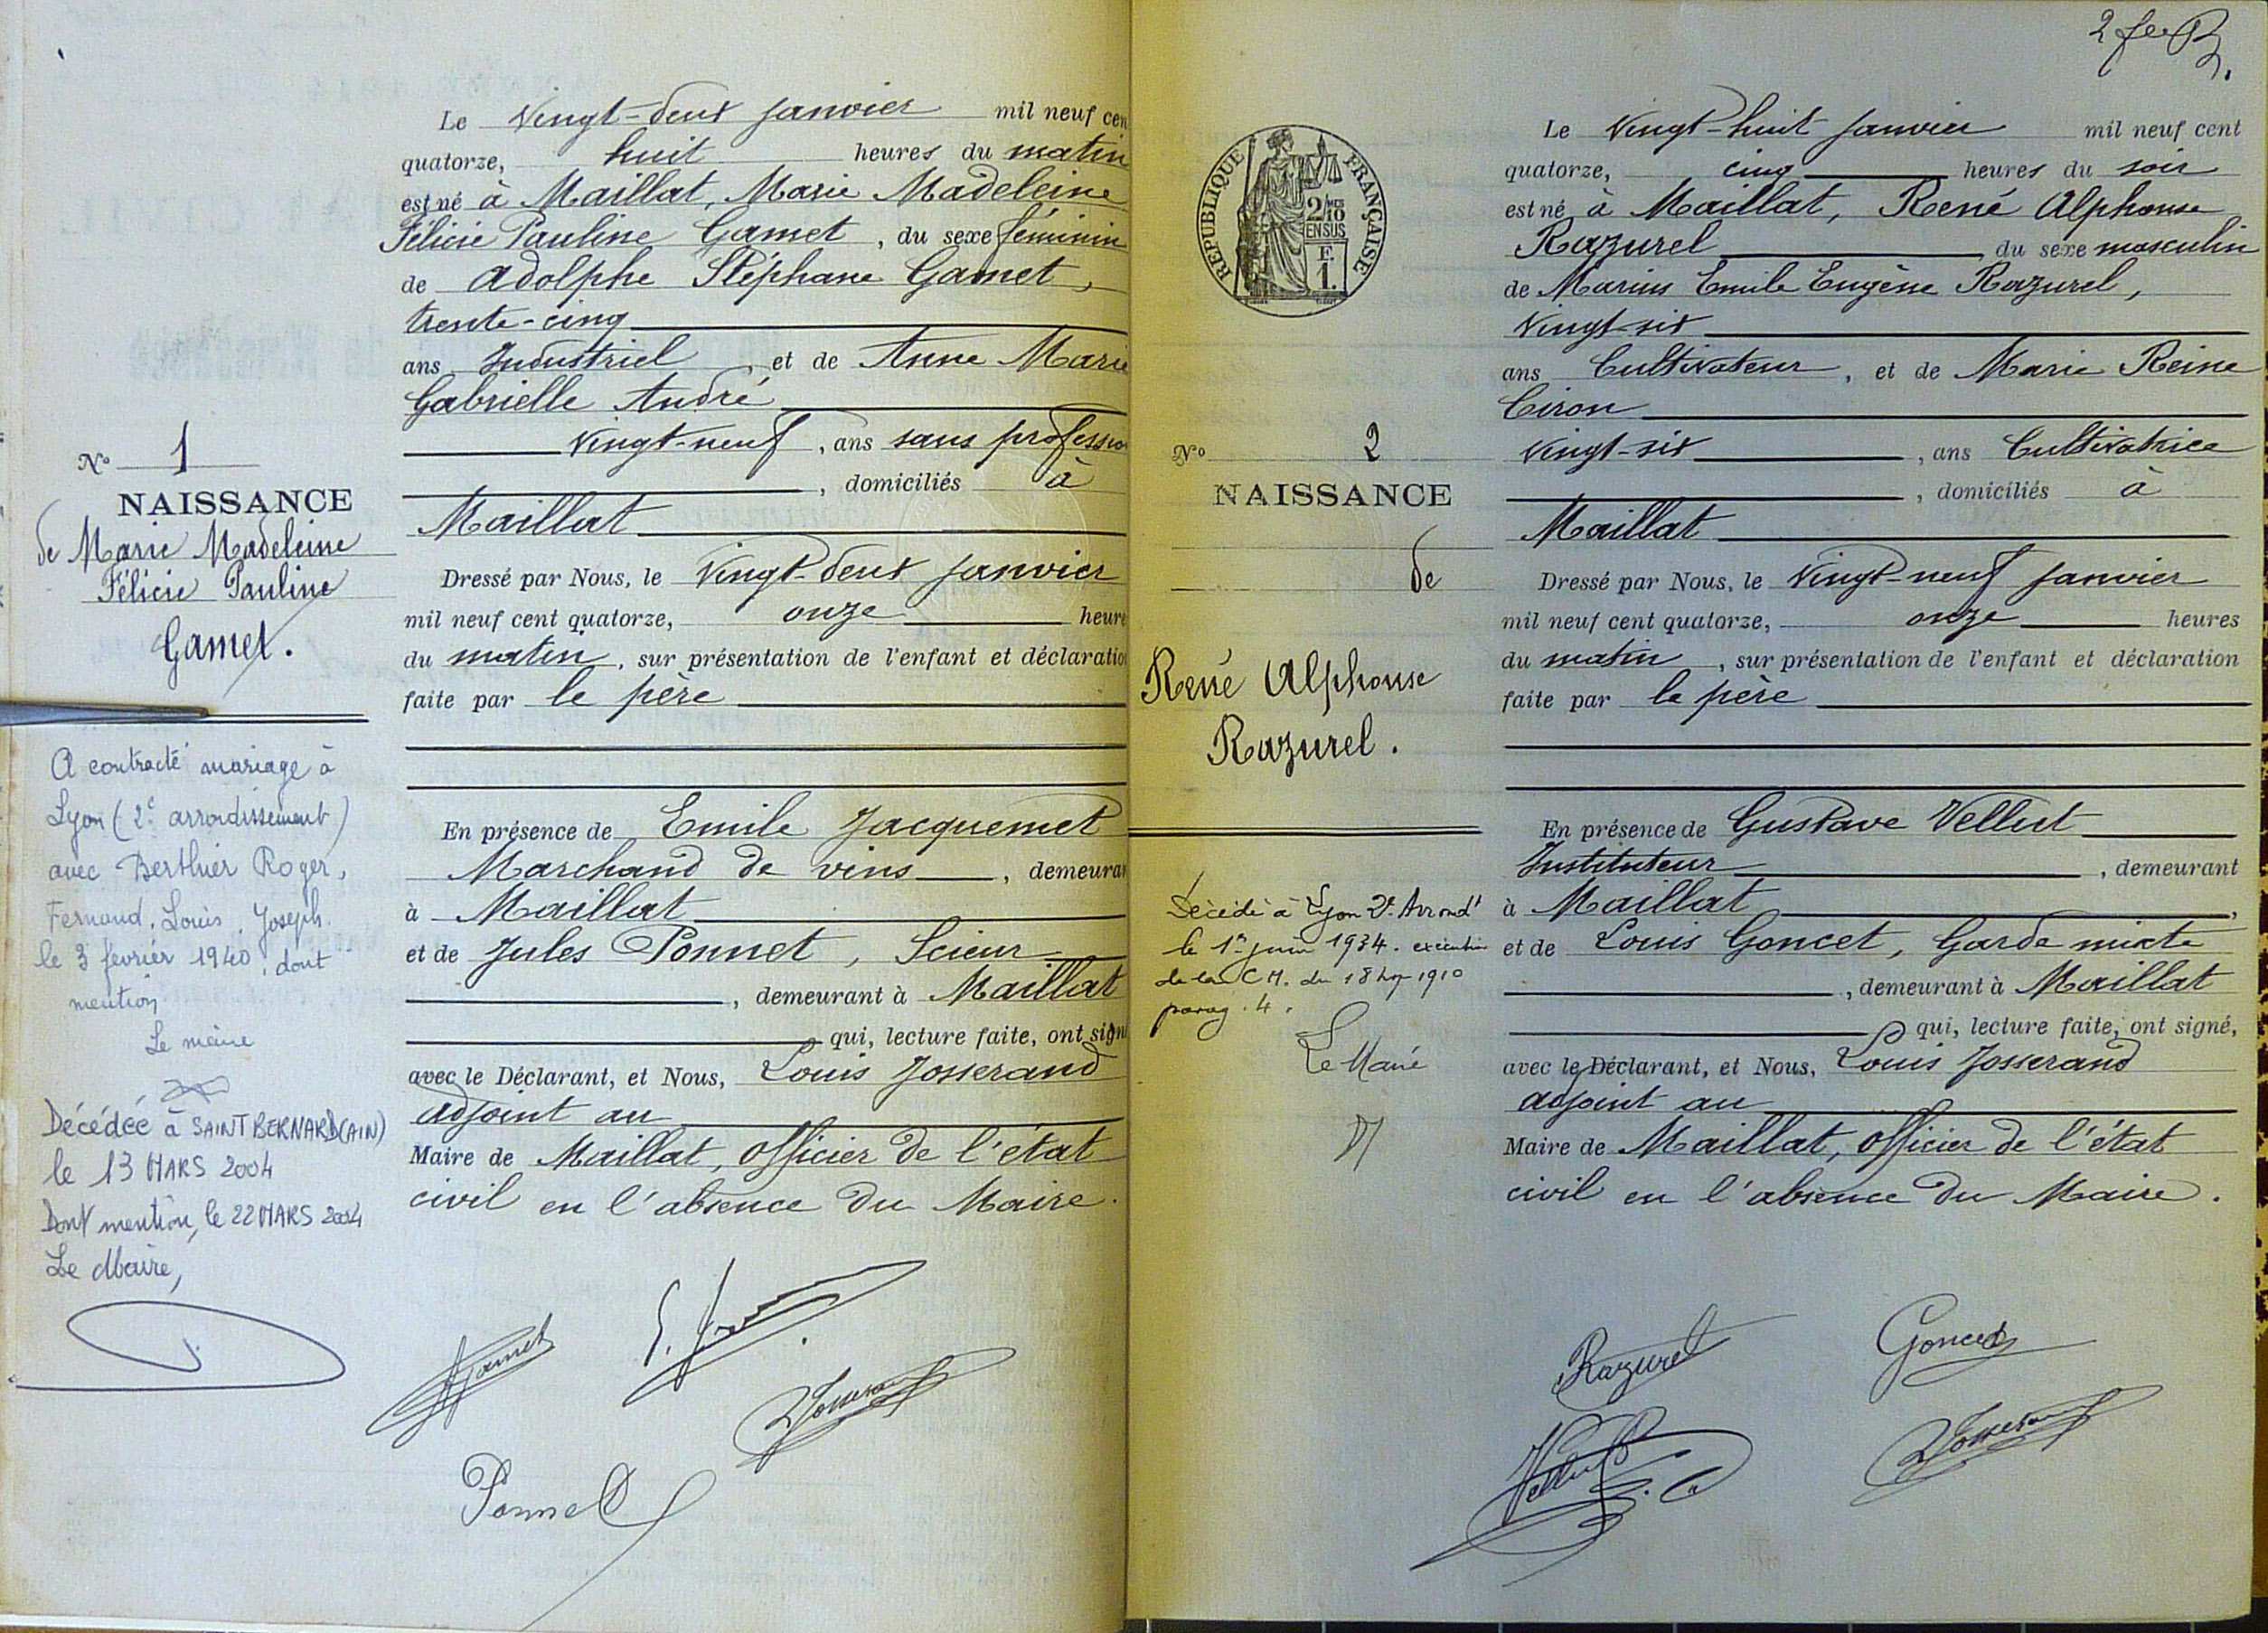 Le Vingt-deux janvier mil neuf cen
quatorze, huit heures du matin
est né à Maillat, Marie Madeleine
Félicie Pauline Gamet, du sexe féminin
de Adolphe Stéphane Gamet,
trente-cinq
ans Industriel, et de Anne Marie
Gabrielle André
Vingt-neuf, ans sans profession
, domiciliés à
Maillat
Dressé par Nous, le Vingt-deux janvier
mil neuf cent quatorze, onze heure
du matin, sur présentation de l'enfant et déclaratio
faite par le père
En présence de Emile Jacquemet
Marchand de vins, demeuran
à Maillat
et de Jules Ponnet, Scieur
, demeurant à Maillat
qui, lecture faite, ont sign
avec le Déclarant, et Nous, Louis Josserand
adjoint au
Maire de Maillat, officier de l'état
civil en l'absence du Maire.
Gamet
Josserand
Ponnet
No 1
NAISSANCE
de Marie Madeleine
Félicie Pauline
Gamet.
A contracté mariage à
Lyon (2e arrondissement)
avec Berthier Roger,
Fernand, Louis, Joseph.
le 3 février 1940, dont
mention
Le maire
Décédée à SAINT BERNARD (AIN)
le 13 MARS 2004
Dont mention, le 22 MARS 2004
Le Maire,
2 fe
RÉPUBLIQUE FRANÇAISE
2/10 MES
EN SUS
F.
1.
Le Vingt-huit janvier mil neuf cent
quatorze, cinq heures du soir
est né à Maillat, René Alphonse
Razurel, du sexe masculin
de Marius Emile Eugène Razurel,
Vingt-six
ans Cultivateur, et de Marie Reine
Ciron
Vingt-six, ans Cultivatrice
, domiciliés à
Maillat
Dressé par Nous, le Vingt-neuf janvier
mil neuf cent quatorze, onze heures
du matin, sur présentation de l'enfant et déclaration
faite par le père
En présence de Gustave Vellut
Instituteur, demeurant
à Maillat,
et de Louis Goncet, Garde mixte
, demeurant à Maillat
qui, lecture faite, ont signé,
avec le Déclarant, et Nous, Louis Josserand
adjoint au
Maire de Maillat, officier de l'état
civil en l'absence du Maire.
Razurel
Goncet
Vellut
Josserand
No 2
NAISSANCE
de
René Alphonse
Razurel.
Décédé à Lyon 2e Arrondt
le 1er juin 1934. exécution
de la C M. du 18 1910
parag. 4.
Le Maire